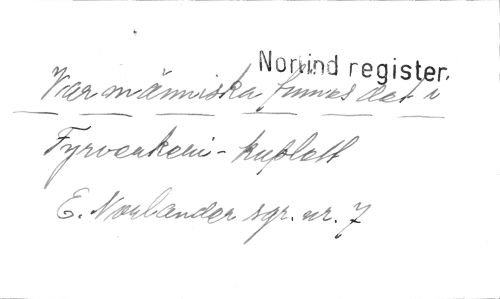 Norlind register.
Var människa finnes det i
Fyrverkeri-kuplett
E. Norlander sgr. nr. 7